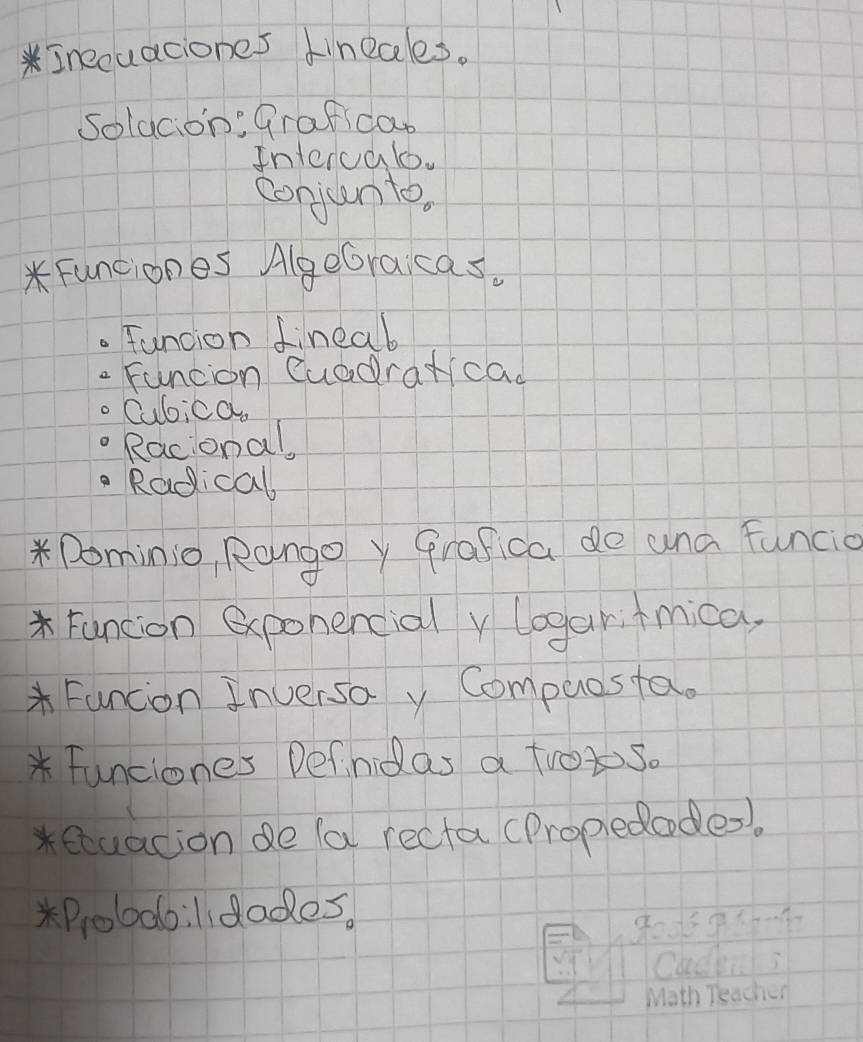 *Inecuaciones Lineales.
Solación: Grafica.
Intervalo.
Conjunto.
*Funciones Algebraicas.
• Funcion Lineal.
• Funcion Cuadratica.
• Cubica.
• Racional.
• Radical.
*Dominio, Rango y Grafica de una Funcio
*Funcion exponencial y Logaritmica.
*Funcion Inversa y Compuesta.
*Funciones Definidas a trozos.
*Ecuacion de la recta (Propiedades).
*Probabilidades.
Math Teacher